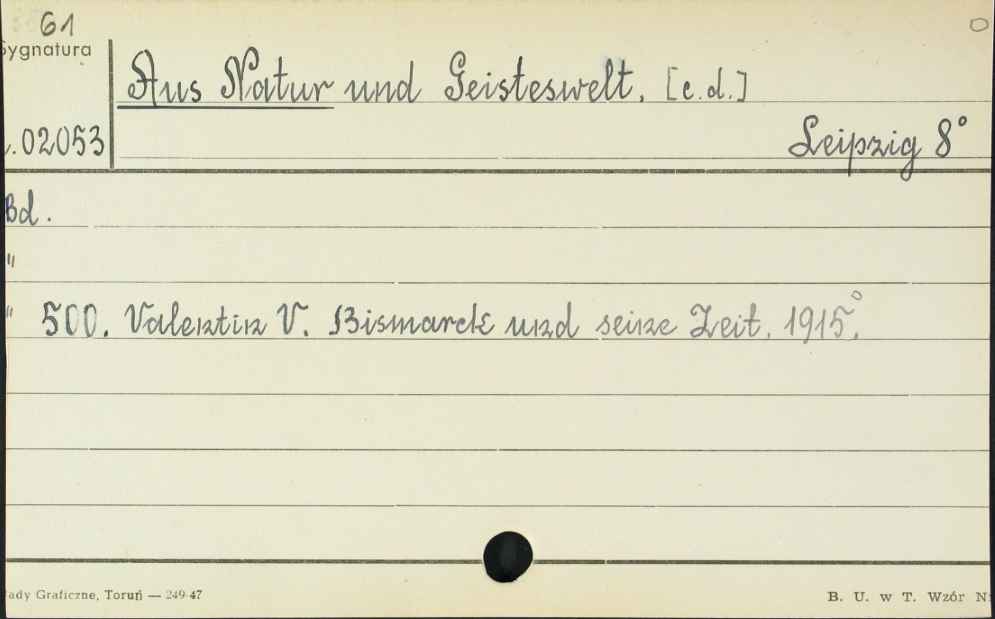 61
Sygnatura
Aus Natur und Geisteswelt. [c.d.]
.02053
Leipzig 8°
Bd.
"
" 500. Valentin V. Bismarck und seine Zeit. 1915.°
ady Graficzne, Toruń — 249-47
B. U. w T. Wzór N